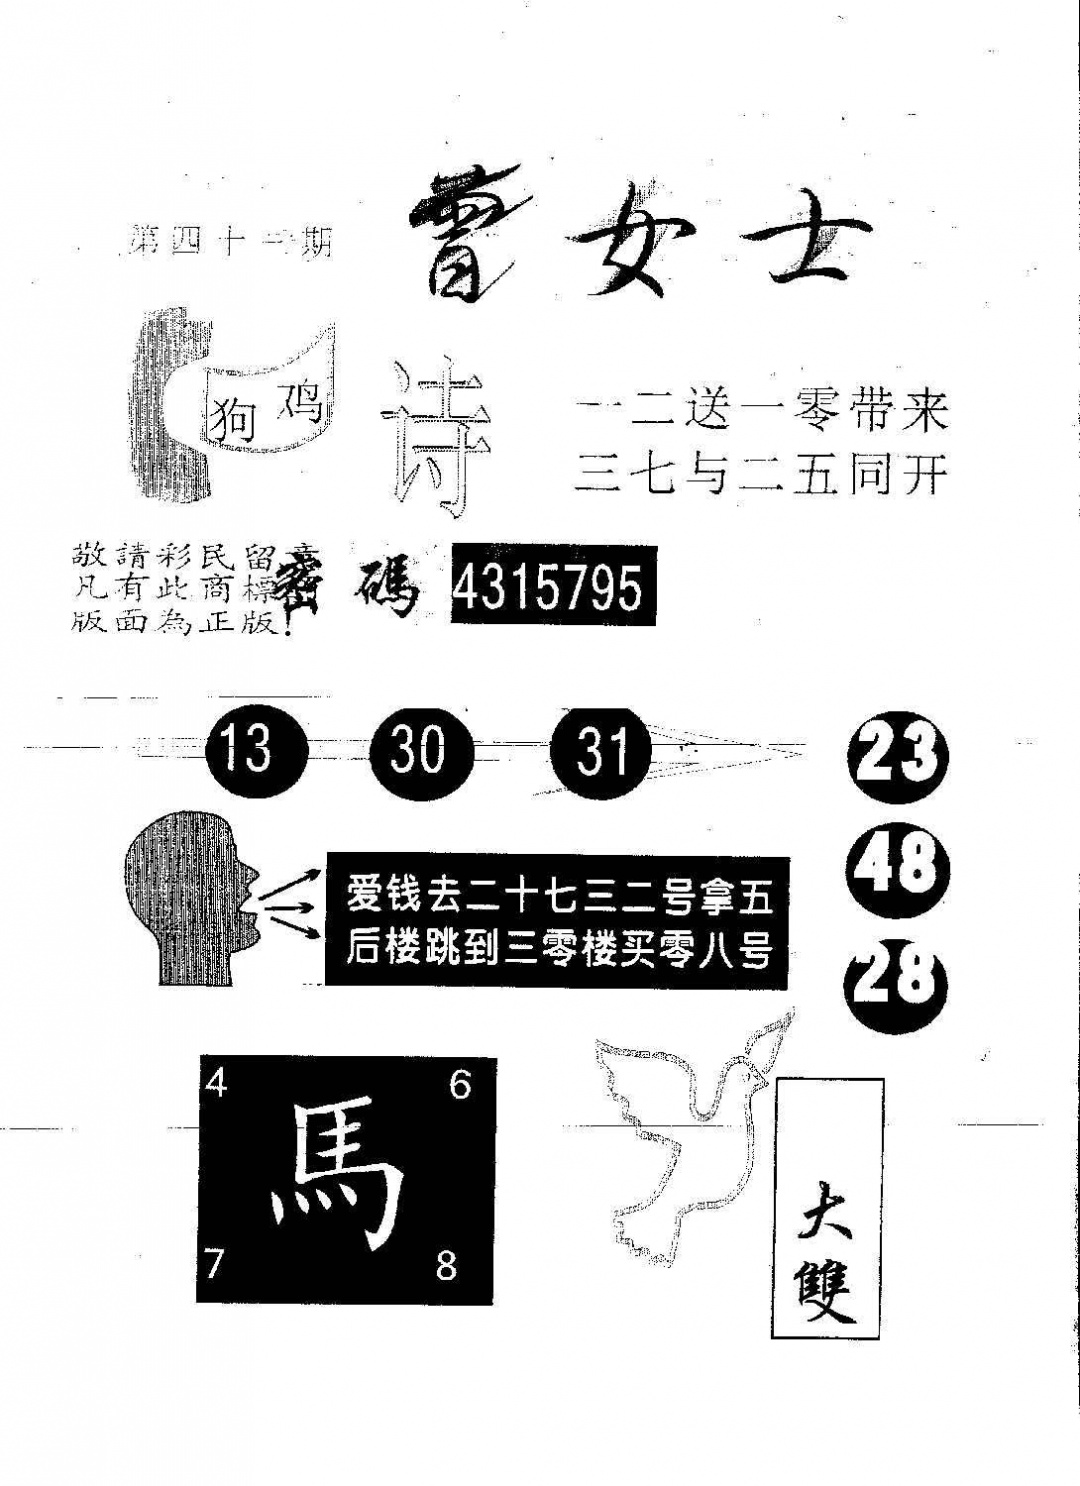 第四十一期
曾女士
狗 鸡
诗
一二送一零带来
三七与二五同开
敬請彩民留意
凡有此商標
版面為正版!
密碼 4315795
13 30 31
23
48
28
爱钱去二十七三二号拿五
后楼跳到三零楼买零八号
4 6
馬
7 8
大雙